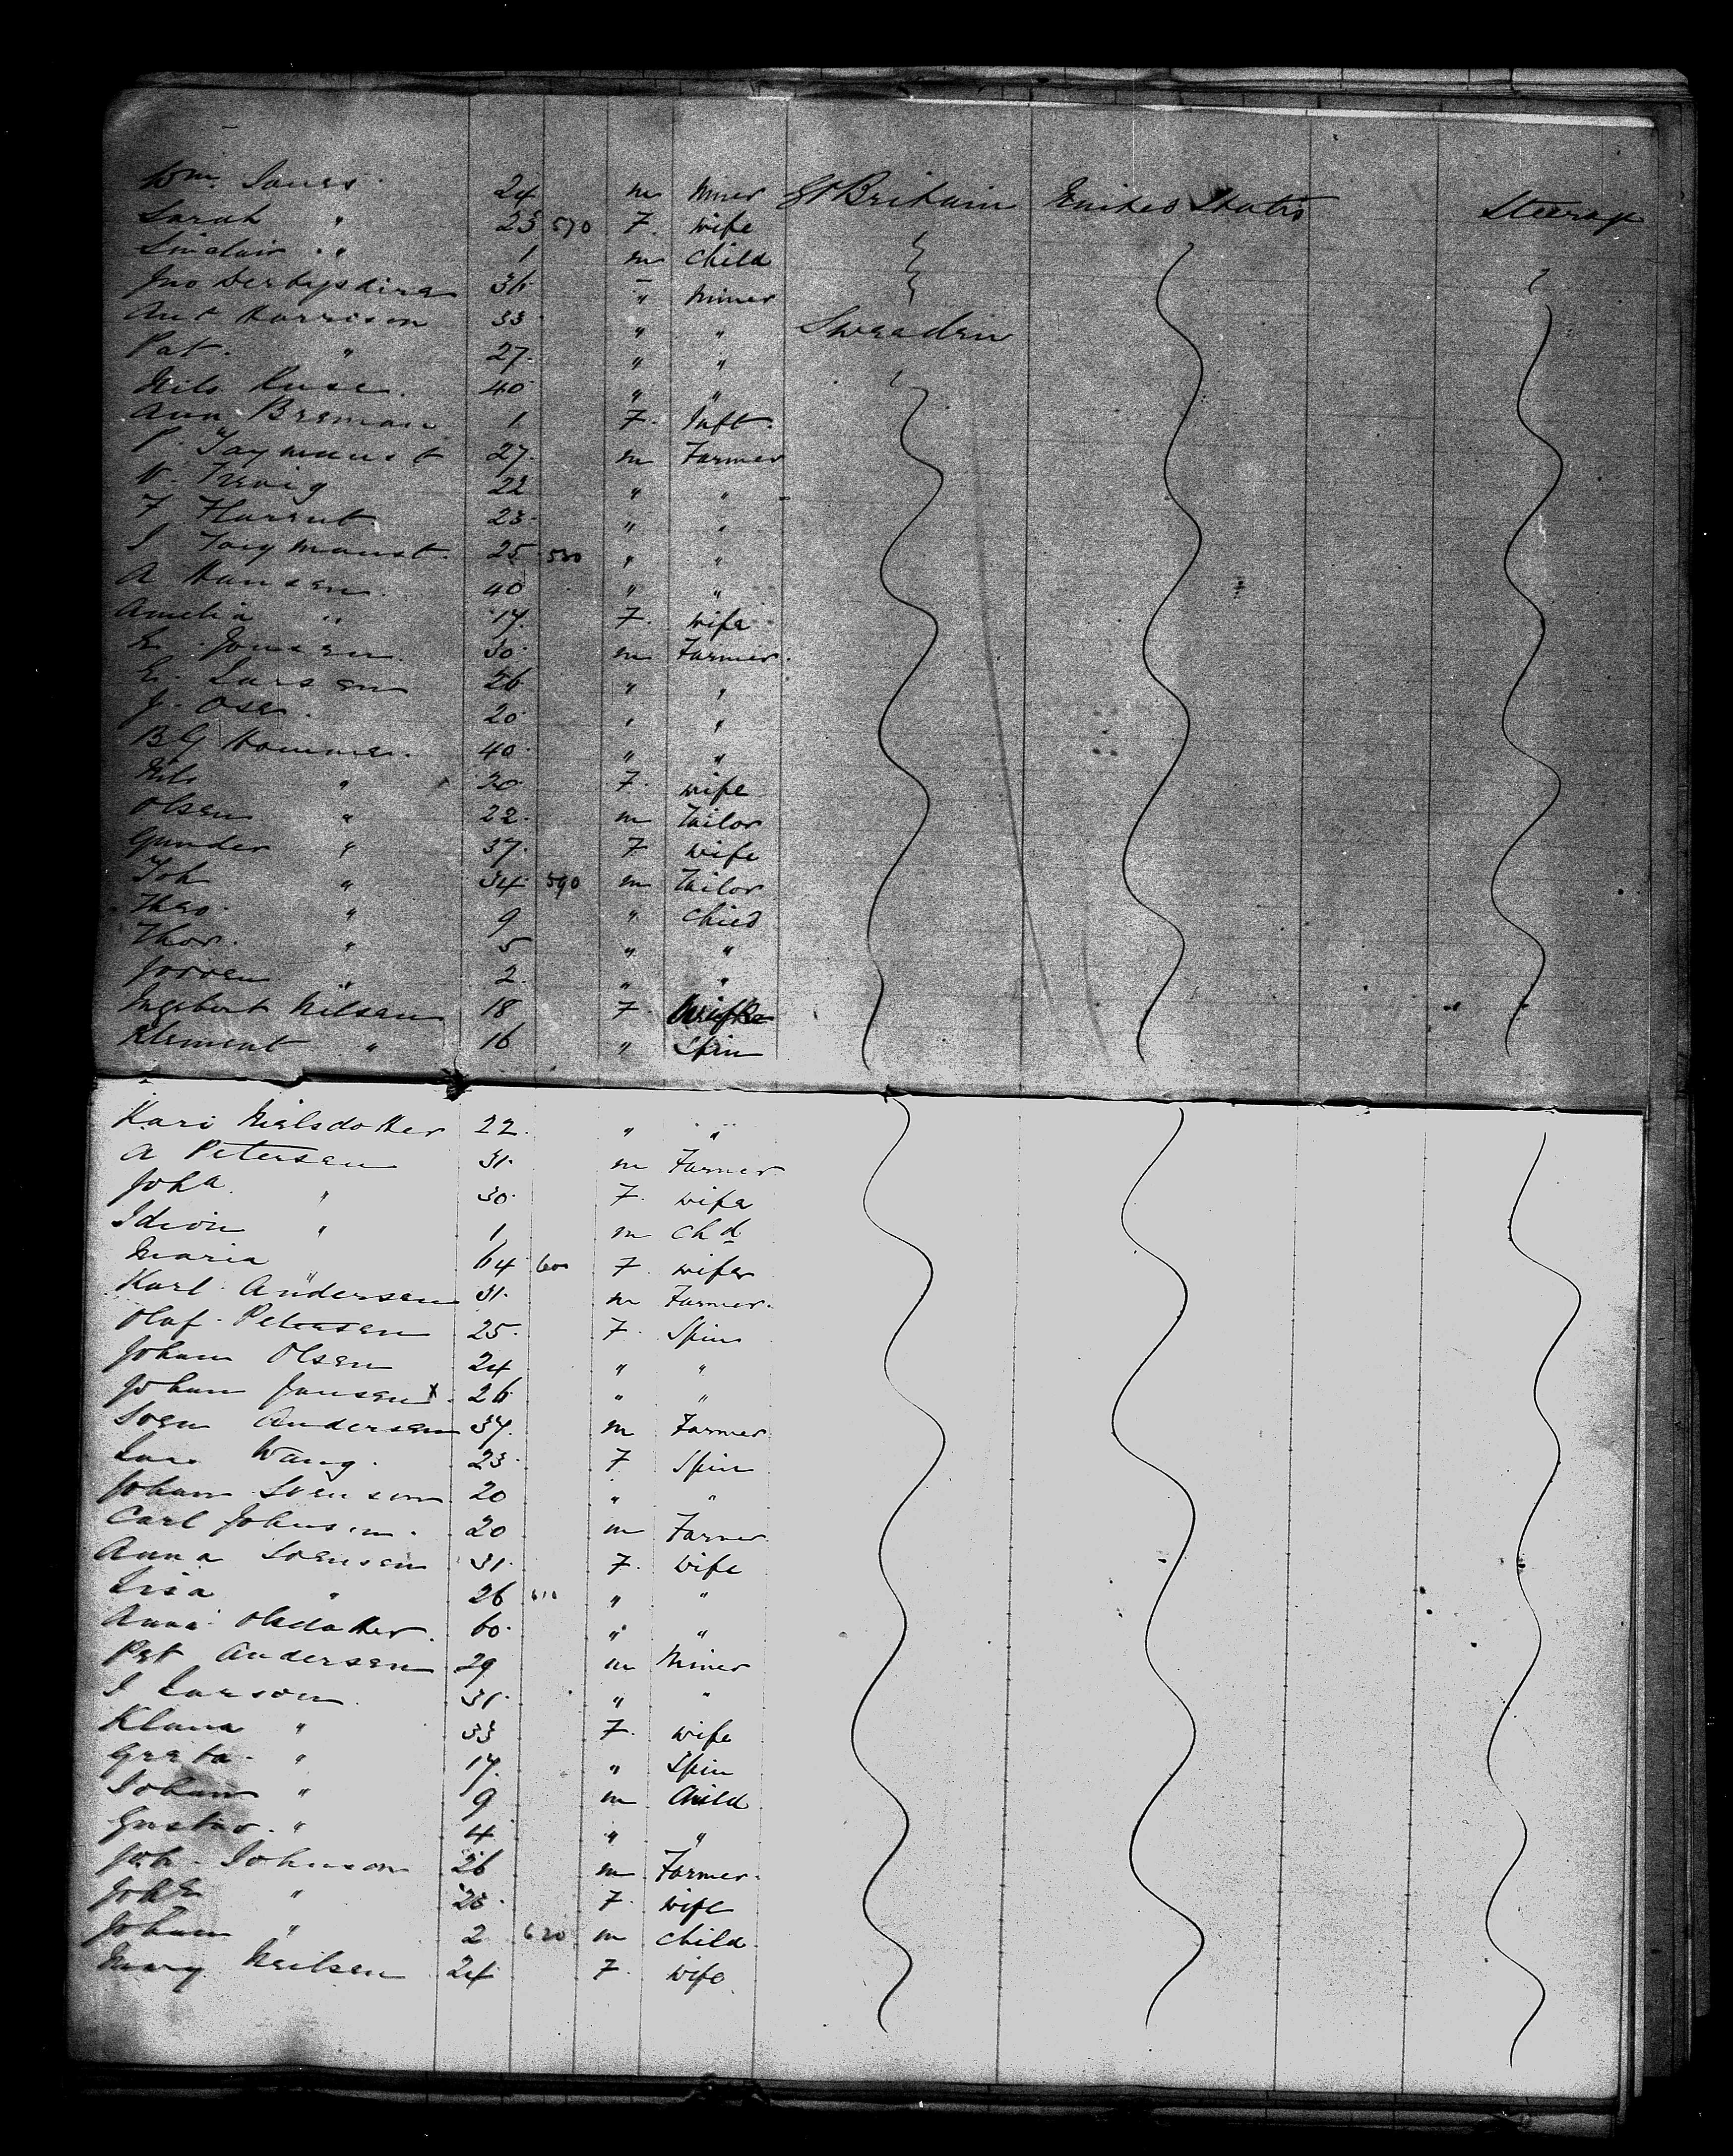 Wm. Jones 24 m Miner Gt Britain United States Steerage
Sarah " 23 570 F. wife
Sinclair " 1 m child
Jno Derbyshire 36 " Miner
Ant Harrison 33 " " Sweaden
Pat. " 27 " "
Nils 40 " "
Ann Breman 1 F. Inft.
P. 27 m Farmer
22 " "
F 23 " "
25 580 " "
A Hansen 40 " "
Amelia " 17 F. wife
Jonsen 30 m Farmer
E. Larsen 26 " "
J. Osen 20 " "
B G Homme 40 " "
Nils " 20 F. wife
Olsen " 22 m Tailor
Gunder " 37 F wife
Joh " 34 590 m Tailor
Theo. " 9 " child
Thor. " 5 " "
" 2 " "
Ingebort Nilsen 18 F
Klement " 16 " Spin
Kari Nielsdotter 22 " "
A Petersen 31 m Farmer
Joha " 30 F. wife
" 1 m chd
Maria " 64 600 F. wife
Karl Andersen 31 m Farmer
Olaf Petersen 25 F. Spin
Johan Olsen 24 " "
Johan Jansen x 26 " "
Sven Andersen 37 m Farmer
Lars Wang 23 F Spin
Johan Svensson 20 " "
Carl Johnsen 20 m Farmer
Anna Svensen 31 F. wife
Lisa " 26 610 " "
Anna Olsdotter 60 " "
Pet Andersen 29 m Miner
J Larson 31 " "
Klana " 33 F. wife
Greta " 17 " Spin
Johan " 9 m Child
Gustav " 4 " "
Joh. Johnson 26 m Farmer
" F. wife
Johan " 2 620 m child
Mary Neilsen 24 F. wife